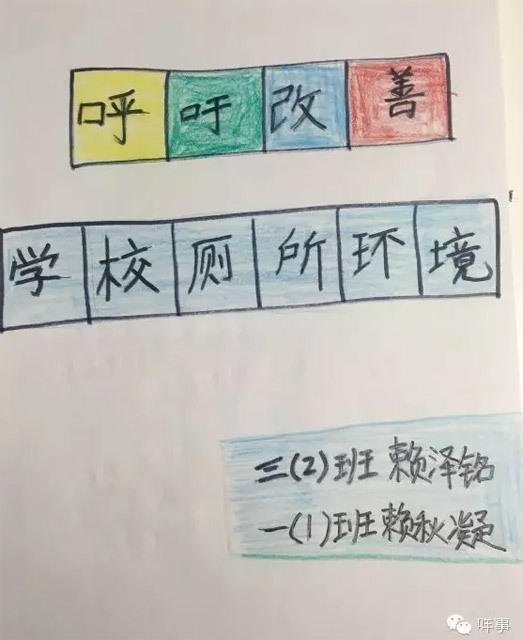 呼吁改善
学校厕所环境
三(2)班 赖泽铭
一(1)班赖秋凝
咩事